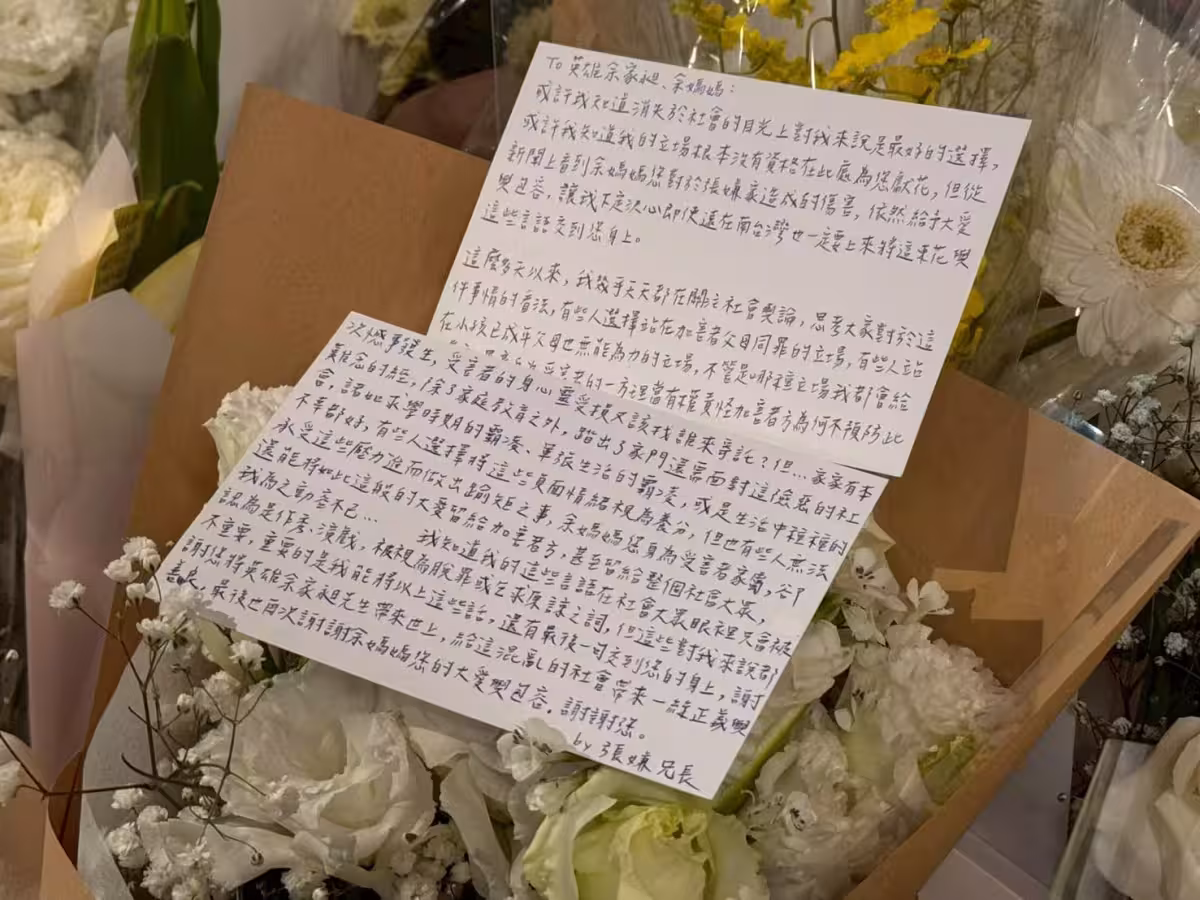 To 英雄余家昶、余媽媽：
或許我知道消失於社會的目光上對我來說是最好的選擇，
或許我知道我的立場根本沒有資格在此處為您獻花，但從
新聞上看到余媽媽您對於張嫌家造成的傷害，依然給予大愛
與包容，讓我下定決心即便遠在南台灣也一定要上來將這束花與
這些言語交到您身上。
這麼多天以來，我幾乎天天都在關注社會輿論，思考大家對於這
件事情的看法，有些人選擇站在加害者父母同罪的立場，有些人站
在小孩已成年父母也無能為力的立場，不管是哪種立場我都會給
的一方還當有權責怪加害者方為何不預防此
次憾事發生，受害者的身心靈受損又該找誰來寄託？但…家家有本
難念的經，除了家庭教育之外，踏出了家門還需面對這險惡的社
會，諸如求學時期的霸凌、單張生活的霸凌，或是生活中種種的
不幸都好，有些人選擇將這些負面情緒視為養分，但也有些人無法
承受這些壓力進而做出踰矩之事，余媽媽您身為受害者家屬，卻
還能將如此這般的大愛留給加害者方，甚至留給整個社會大眾，
我為之動容不已… 我知道我的這些言語在社會大眾眼裡只會被
認為是作秀、演戲，被視為脫罪或乞求原諒之詞，但這些對我來說都
不重要，重要的是我能將以上這些話，還有最後一句交到您的身上，謝
謝您將英雄余家昶先生帶來世上，給這混亂的社會帶來一線正義與
善良，最後也再次謝謝余媽媽您的大愛與包容，謝謝您。
by 張嫌兄長